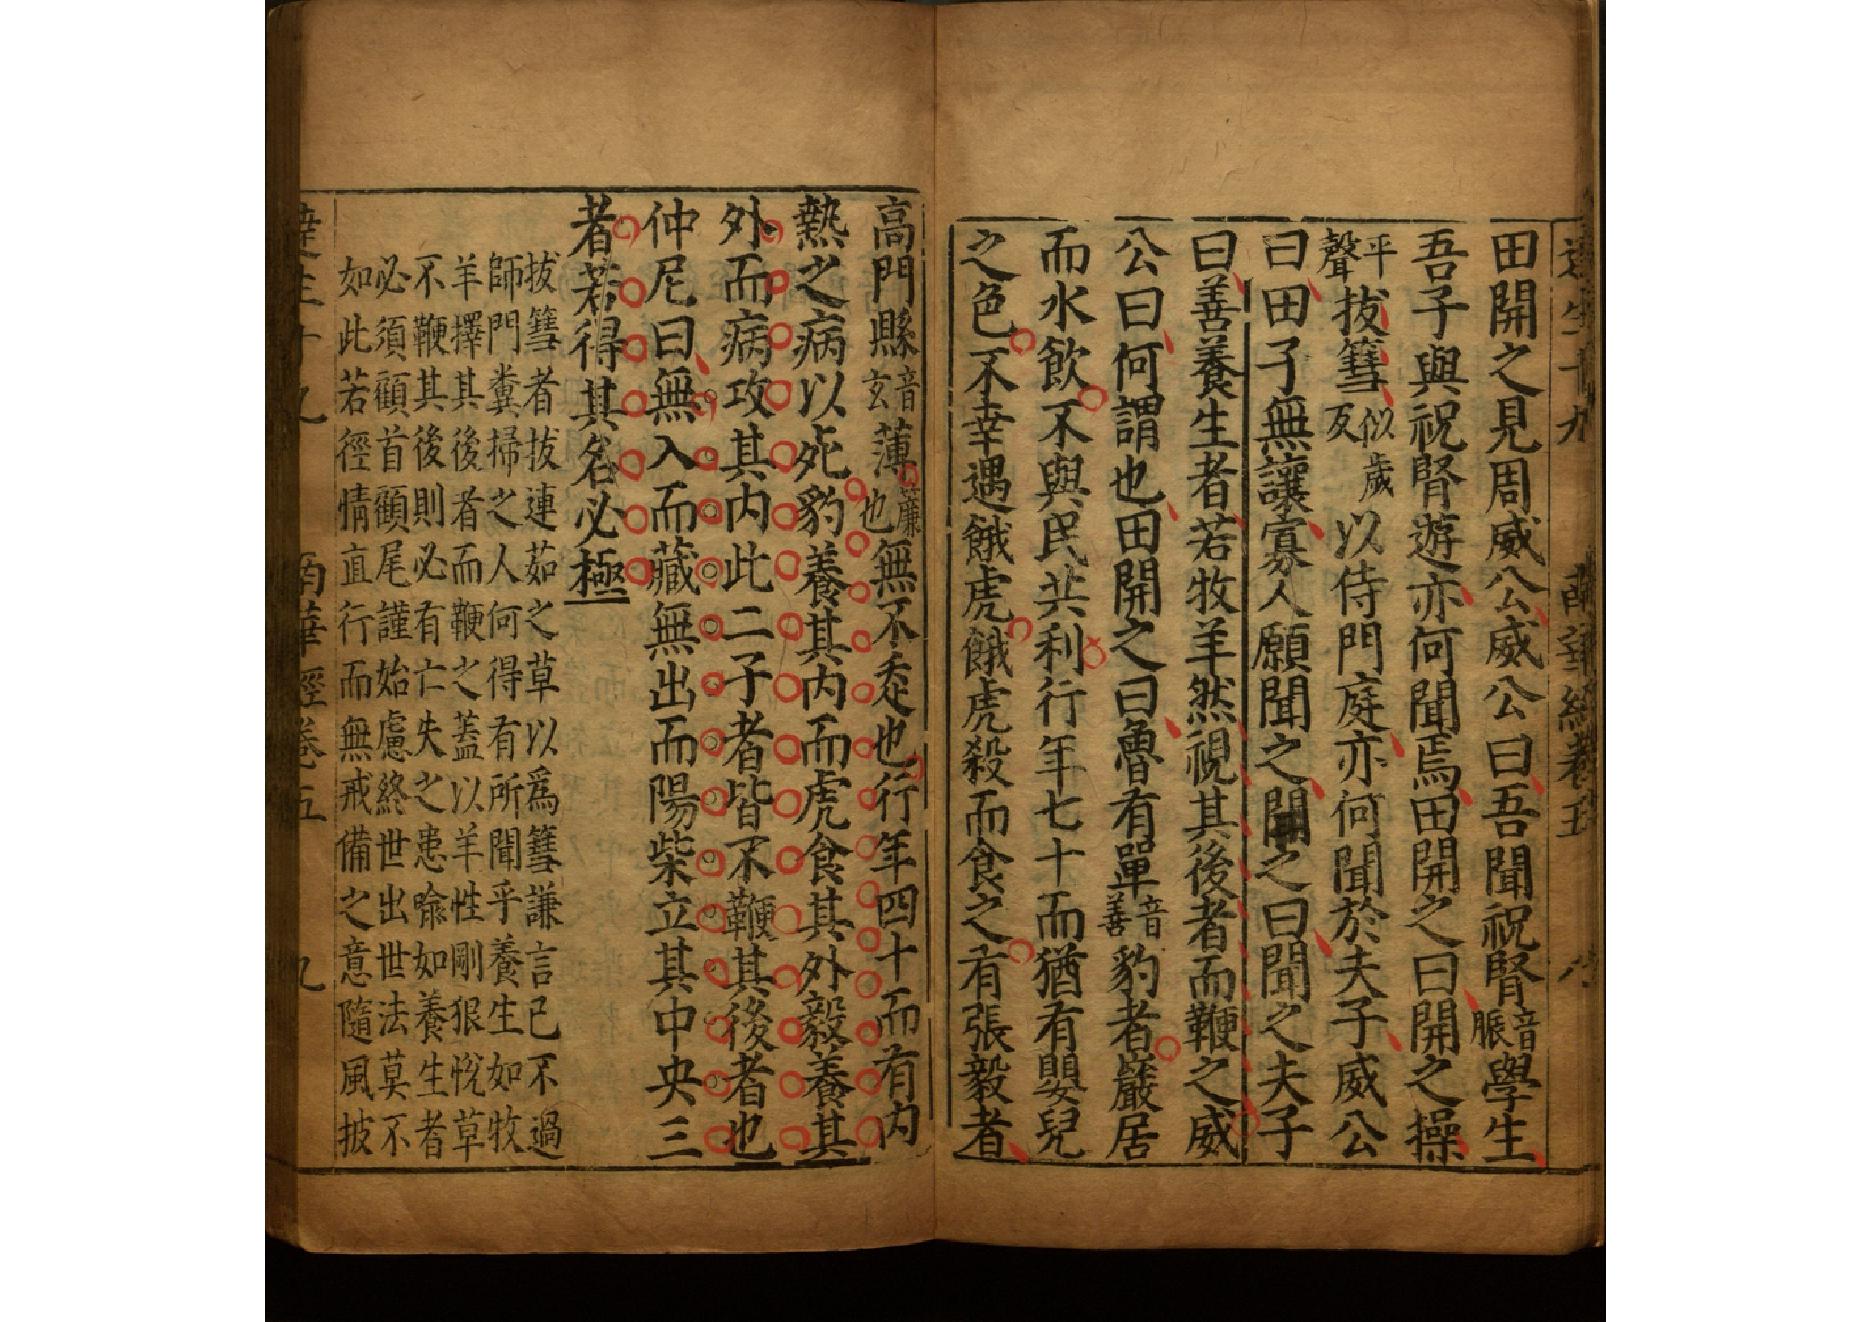 達生十九 南華經卷五 八
田開之見周威公威公曰吾聞祝腎音脤學生
吾子與祝腎遊亦何聞焉田開之曰開之操
平聲拔篲似歲反以侍門庭亦何聞於夫子威公
曰田子無讓寡人願聞之開之曰聞之夫子
曰善養生者若牧羊然視其後者而鞭之威
公曰何謂也田開之曰魯有單音善豹者巖居
而水飲不與民共利行年七十而猶有嬰兒
之色不幸遇餓虎餓虎殺而食之有張毅者
高門縣音玄薄簾也無不走也行年四十而有內
熱之病以死豹養其內而虎食其外毅養其
外而病攻其內此二子者皆不鞭其後者也
仲尼曰無入而藏無出而陽柴立其中央三
者若得其名必極
拔篲者拔連茹之草以為篲謙言已不過
師門糞掃之人何得有所聞乎養生如牧
羊擇其後者而鞭之蓋以羊性剛狠悅草
不鞭其後則必有亡失之患喻如養生者
必須顧首顧尾謹始慮終世出世法莫不
如此若徑情直行而無戒備之意隨風披
達生十九 南華經卷五 九